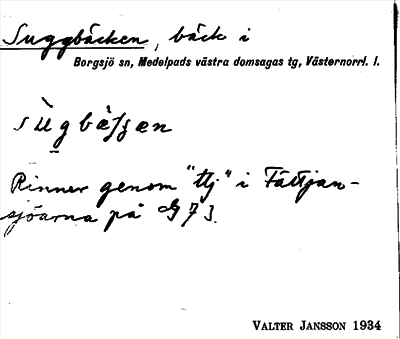 Suggbäcken, bäck i
Borgsjö sn, Medelpads västra domsagas tg, Västernorrl. l.
Rinner genom "ttj" i Fättjan-
sjöarna på G 7 3.
VALTER JANSSON 1934